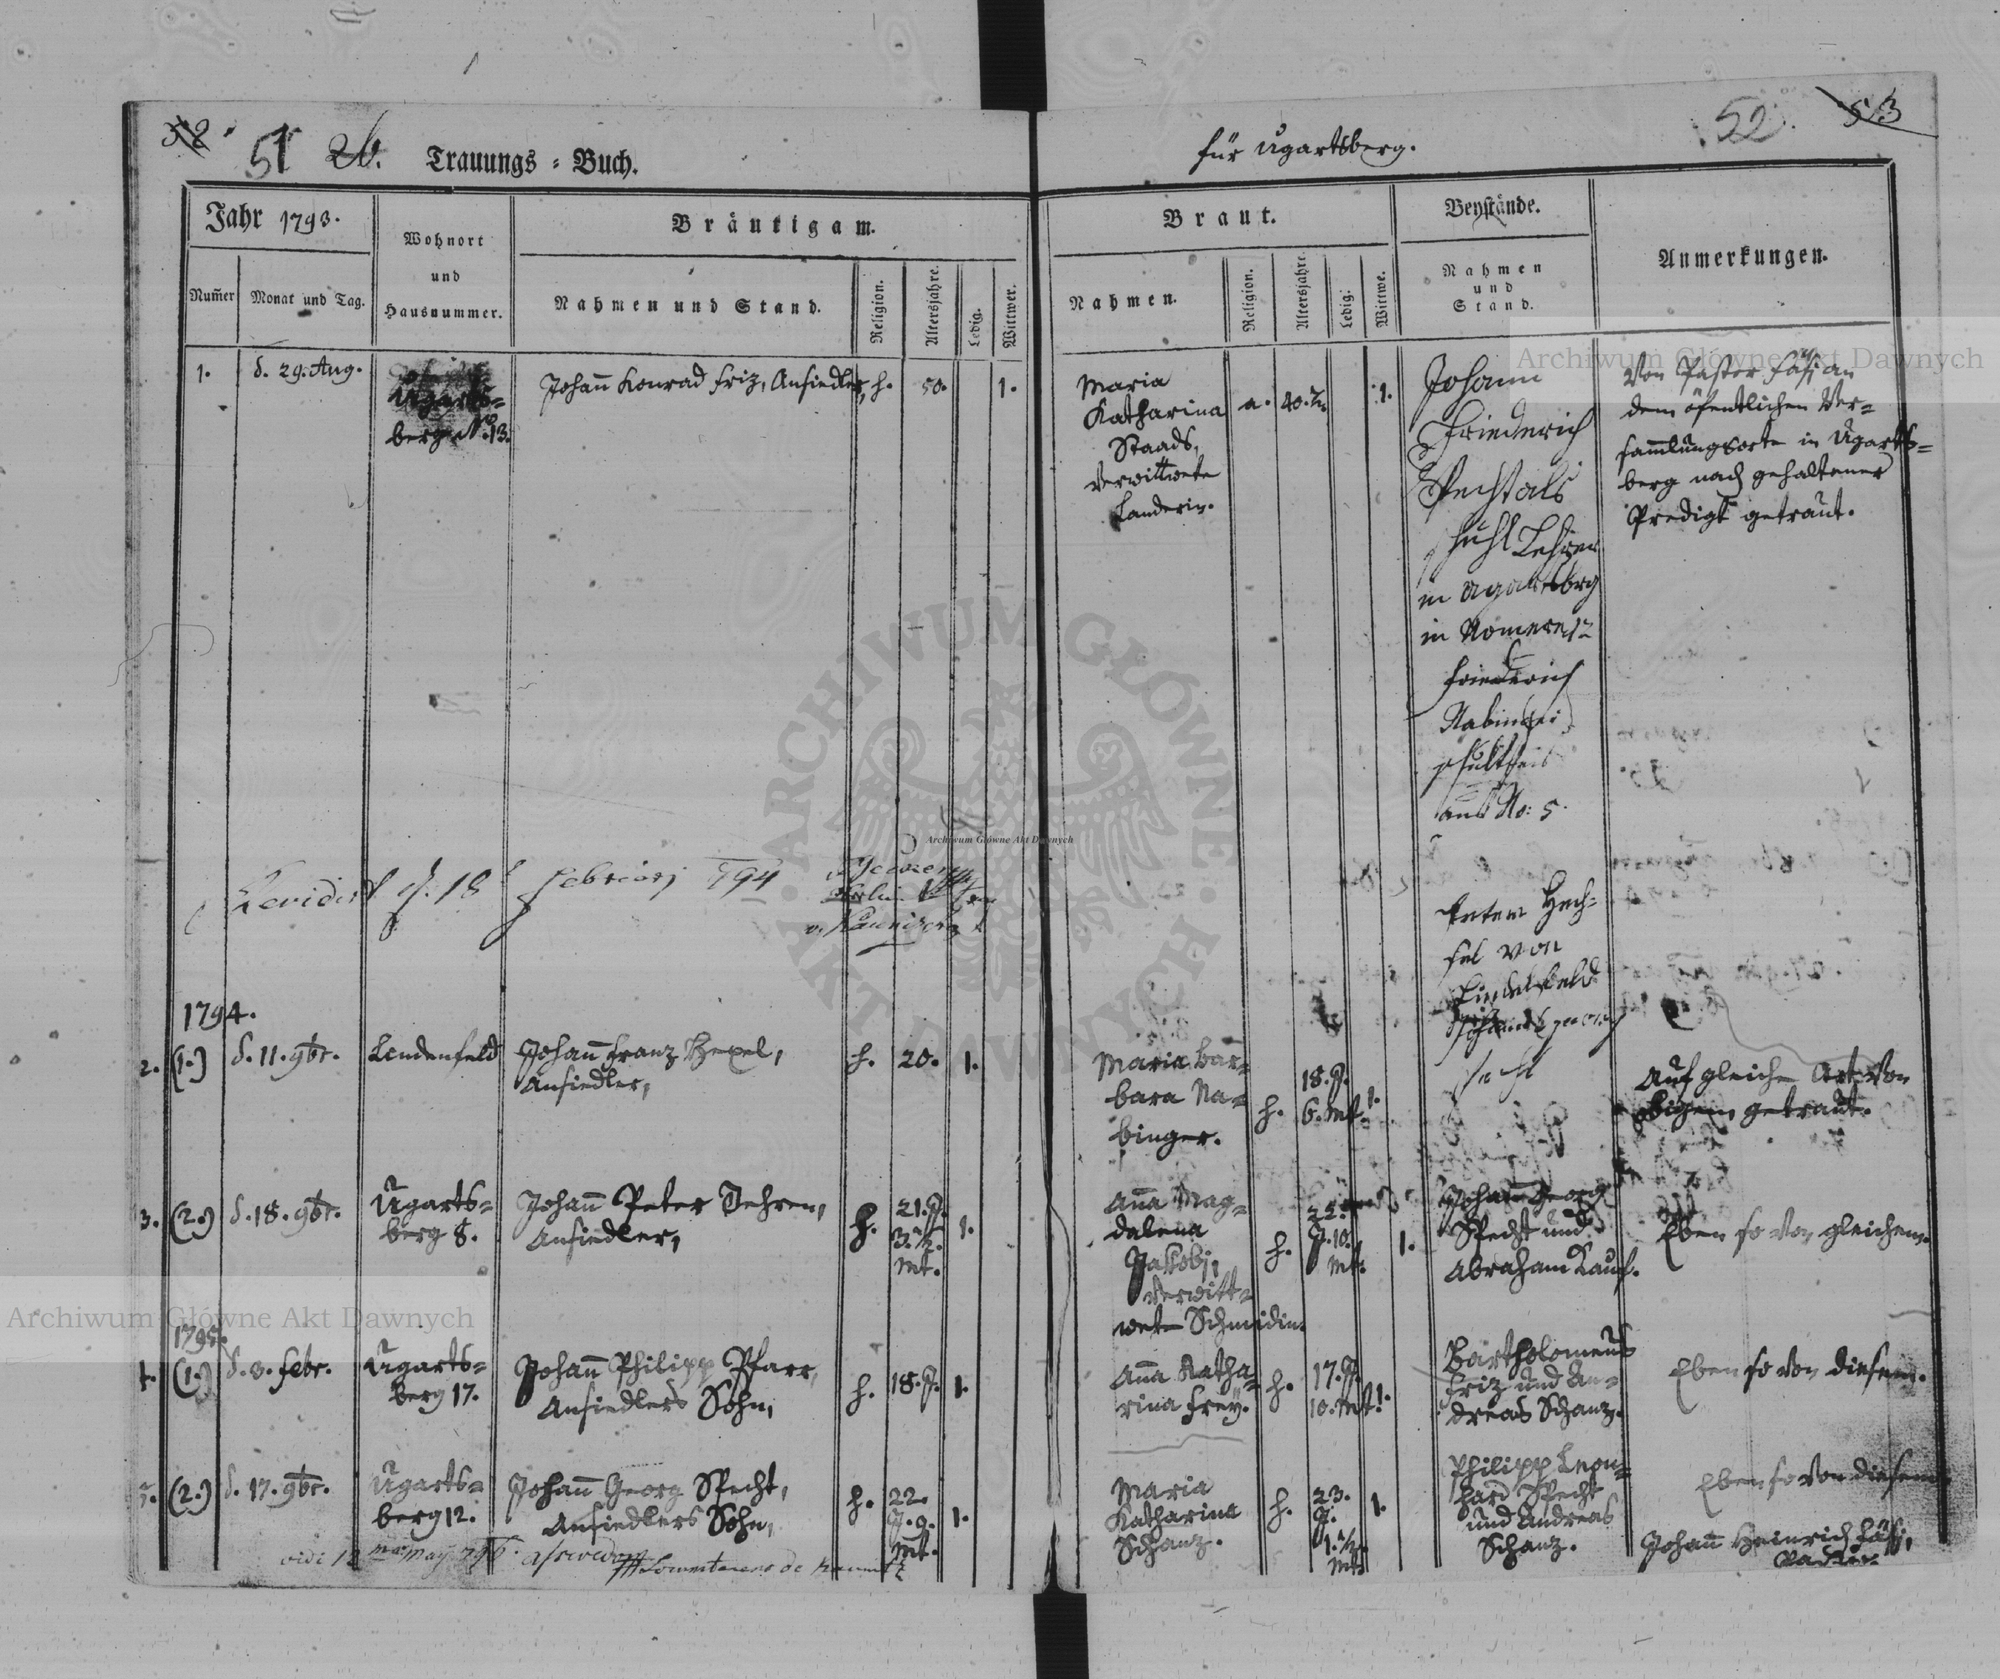 51 26. Trauungs = Buch.
für Ugartsberg.
52. 53
Jahr 1793.
Wohnort
und
Hausnummer.
Bräutigam.
Braut.
Beystände.
Anmerkungen.
Num̃er
Monat und Tag.
Nahmen und Stand.
Religion.
Altersjahre.
Ledig.
Wittwer.
Nahmen.
Religion.
Altersjahre.
Ledig.
Wittwe.
Nahmen
und
Stand.
1.
d. 29. Aug.
Ugarts=
berg No. 13.
Johañ Konrad Friz, Ansiedler,
h.
50.
1.
Maria
Katharina
Staads,
verwittwete
Landerin.
a.
40.
1.
Johann
Friederich
Specht als
schuhl Lehrer
in Ugartsberg
in Nomero 12
Friederich
Nabinger
schultheis
aus No: 5.
Von Pastor Fäsi an
dem öfentlichen Ver=
sam̃lungsorte in Ugarts=
berg nach gehaltener
Predigt getraut.
Revidirt d. 18 Februarj 794
Peter Hech=
sel von
1794.
2. (1.)
d. 11. 9br.
Lindenfeld
Johañ Franz Hexel,
Ansiedler,
h.
20.
1.
Maria Bar=
bara Na=
binger.
h.
18. J.
6. Mt.
1.
Auf gleiche Art von
obigem getraut.
3. (2.)
d. 18. 9br.
Ugarts=
berg 8.
Johañ Peter Jehren,
Ansiedler,
h.
21. J.
3. ½.
Mt.
1.
Añа Mag=
dalena
Jakobi,
verwitt=
wete Schmidin.
h.
22.
J. 10.
Mt.
1.
Johañ Georg
Specht und
Abraham Kauf.
Eben so von gleichem.
1795.
4. (1.)
d. 3. Febr.
Ugarts=
berg 17.
Johañ Philipp Pfarr,
Ansiedlers Sohn,
h.
18. J.
1.
Aña Katha=
rina Frey.
h.
17. J.
10. Mt.
1.
Bartholomeus
Friz und An=
dreas Schanz.
Eben so von diesem.
5. (2.)
d. 17. 9br.
Ugarts=
berg 12.
Johañ Georg Specht,
Ansiedlers Sohn,
h.
22.
J. 9.
Mt.
1.
Maria
Katharina
Schanz.
h.
23.
J.
1. ½.
Mt.
1.
Philipp Leon=
hard Specht
und Andreas
Schanz.
Eben so von diesem
Johañ Heinrich Fäsi,
Pastor.
vidi 12 May 796
Archiwum Główne Akt Dawnych
Archiwum Główne Akt Dawnych
Archiwum Główne Akt Dawnych
ARCHIWUM GŁÓWNE AKT DAWNYCH